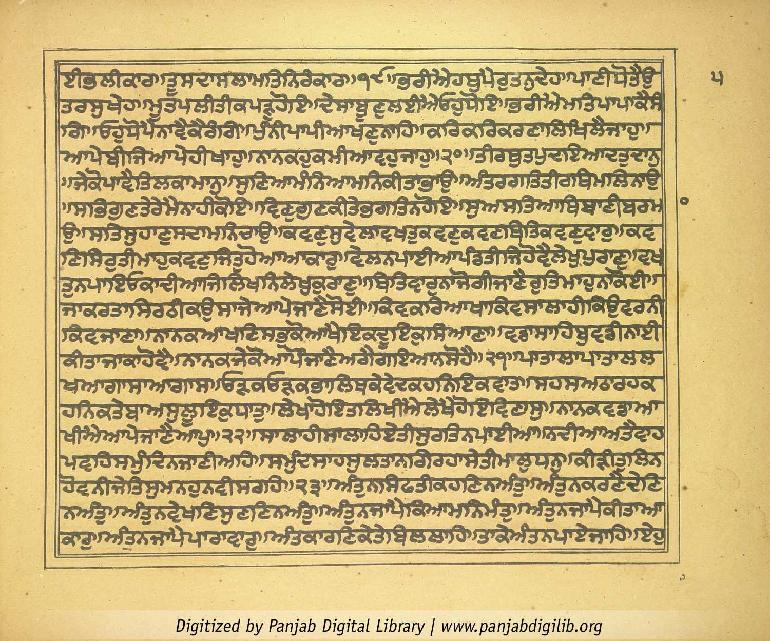 ਈਭਲੀਕਾਰ॥ਤੂਸਦਾਸਲਾਮਤਿਨਿਰੰਕਾਰ॥੧੯॥ਭਰੀਐਹਥੁਪੈਰੁਤਨੁਦੇਹ॥ਪਾਣੀਧੋਤੈਉ
ਤਰਸੁਖੇਹ॥ਮੂਤਪਲੀਤੀਕਪੜੁਹੋਇ॥ਦੇਸਾਬੂਣੁਲਈਐਓਹੁਧੋਇ॥ਭਰੀਐਮਤਿਪਾਪਾਕੈਸੰ
ਗਿ॥ਓਹੁਧੋਪੈਨਾਵੈਕੈਰੰਗਿ॥ਪੁੰਨੀਪਾਪੀਆਖਣੁਨਾਹਿ॥ਕਰਿਕਰਿਕਰਣਾਲਿਖਿਲੈਜਾਹੁ॥
ਆਪੇਬੀਜਿਆਪੇਹੀਖਾਹੁ॥ਨਾਨਕਹੁਕਮੀਆਵਹੁਜਾਹੁ॥੨੦॥ਤੀਰਥੁਤਪੁਦਇਆਦਤੁਦਾਨੁ
॥ਜੇਕੋਪਾਵੈਤਿਲਕਾਮਾਨੁ॥ਸੁਣਿਆਮੰਨਿਆਮਨਿਕੀਤਾਭਾਉ॥ਅੰਤਰਗਤਿਤੀਰਥਿਮਲਿਨਾਉ
॥ਸਭਿਗੁਣਤੇਰੇਮੈਨਾਹੀਕੋਇ॥ਵਿਣੁਗੁਣਕੀਤੇਭਗਤਿਨਹੋਇ॥ਸੁਅਸਤਿਆਥਿਬਾਣੀਬਰਮ
ਉ॥ਸਤਿਸੁਹਾਣੁਸਦਾਮਨਿਚਾਉ॥ਕਵਣੁਸੁਵੇਲਾਵਖਤੁਕਵਣੁਕਵਣਥਿਤਿਕਵਣੁਵਾਰੁ॥ਕਵ
ਣਿਸਿਰੁਤੀਮਾਹੁਕਵਣੁਜਿਤੁਹੋਆਆਕਾਰੁ॥ਵੇਲਨਪਾਈਆਪੰਡਤੀਜਿਹੋਵੈਲੇਖੁਪੁਰਾਣੁ॥ਵਖ
ਤੁਨਪਾਇਓਕਾਦੀਆਜਿਲਿਖਨਿਲੇਖੁਕੁਰਾਣੁ॥ਥਿਤਿਵਾਰੁਨਾਜੋਗੀਜਾਣੈਰੁਤਿਮਾਹੁਨਾਕੋਈ॥
ਜਾਕਰਤਾਸਿਰਠੀਕਉਸਾਜੇਆਪੇਜਾਣੈਸੋਈ॥ਕਿਵਕਰਿਆਖਾਕਿਵਸਾਲਾਹੀਕਿਉਵਰਨੀ
ਕਿਵਜਾਣਾ॥ਨਾਨਕਆਖਣਿਸਭੁਕੋਆਖੈਇਕਦੂਇਕੁਸਿਆਣਾ॥ਵਡਾਸਾਹਿਬੁਵਡੀਨਾਈ
ਕੀਤਾਜਾਕਾਹੋਵੈ॥ਨਾਨਕਜੇਕੋਆਪੌਜਾਣੈਅਗੈਗਇਆਨਸੋਹੈ॥੨੧॥ਪਾਤਾਲਾਪਾਤਾਲਲ
ਖਆਗਾਸਾਆਗਾਸ॥ਓੜਕਓੜਕਭਾਲਿਥਕੇਵੇਦਕਹਨਿਇਕਵਾਤ॥ਸਹਸਅਠਾਰਹਕ
ਹਨਿਕਤੇਬਾਅਸੁਲੂਇਕੁਧਾਤੁ॥ਲੇਖਾਹੋਇਤਲਿਖੀਐਲੇਖੈਹੋਇਵਿਣਾਸੁ॥ਨਾਨਕਵਡਾਆ
ਖੀਐਆਪੇਜਾਣੈਆਪੁ॥੨੨॥ਸਾਲਾਹੀਸਾਲਾਹਿਏਤੀਸੁਰਤਿਨਪਾਈਆ॥ਨਦੀਆਅਤੈਵਾਹ
ਪਵਹਿਸਮੁੰਦਿਨਜਾਣੀਅਹਿ॥ਸਮੁੰਦਸਾਹਸੁਲਤਾਨਗਿਰਹਾਸੇਤੀਮਾਲੁਧਨੁ॥ਕੀੜੀਤੁਲਿਨ
ਹੋਵਨੀਜੇਤਿਸੁਮਨਹੁਨਵੀਸਰਹਿ॥੨੩॥ਅੰਤੁਨਸਿਫਤੀਕਹਣਿਨਅੰਤੁ॥ਅੰਤੁਨਕਰਣੈਦੇਣਿ
ਨਅੰਤੁ॥ਅੰਤੁਨਵੇਖਣਿਸੁਣਣਿਨਅੰਤੁ॥ਅੰਤੁਨਜਾਪੈਕਿਆਮਨਿਮੰਤੁ॥ਅੰਤੁਨਜਾਪੈਕੀਤਾਆ
ਕਾਰੁ॥ਅੰਤੁਨਜਾਪੈਪਾਰਾਵਾਰੁ॥ਅੰਤਕਾਰਣਿਕੇਤੇਬਿਲਲਾਹਿ॥ਤਾਕੇਅੰਤਨਪਾਏਜਾਹਿ॥ਏਹੁ
੫
Digitized by Panjab Digital Library | www.panjabdigilib.org